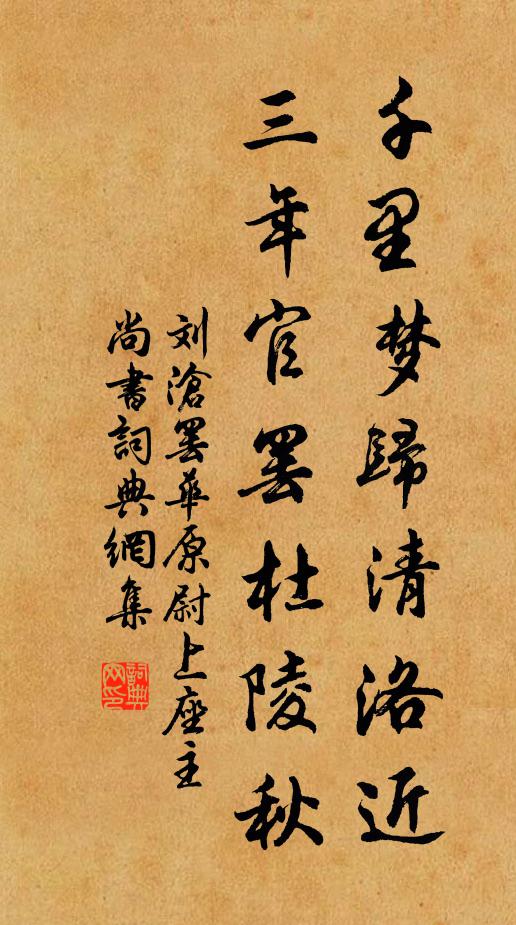 千里梦歸清洛近
三年官罢杜陵秋
刘滄罢華原尉上座主
尚書詞典網集
詞典
网印